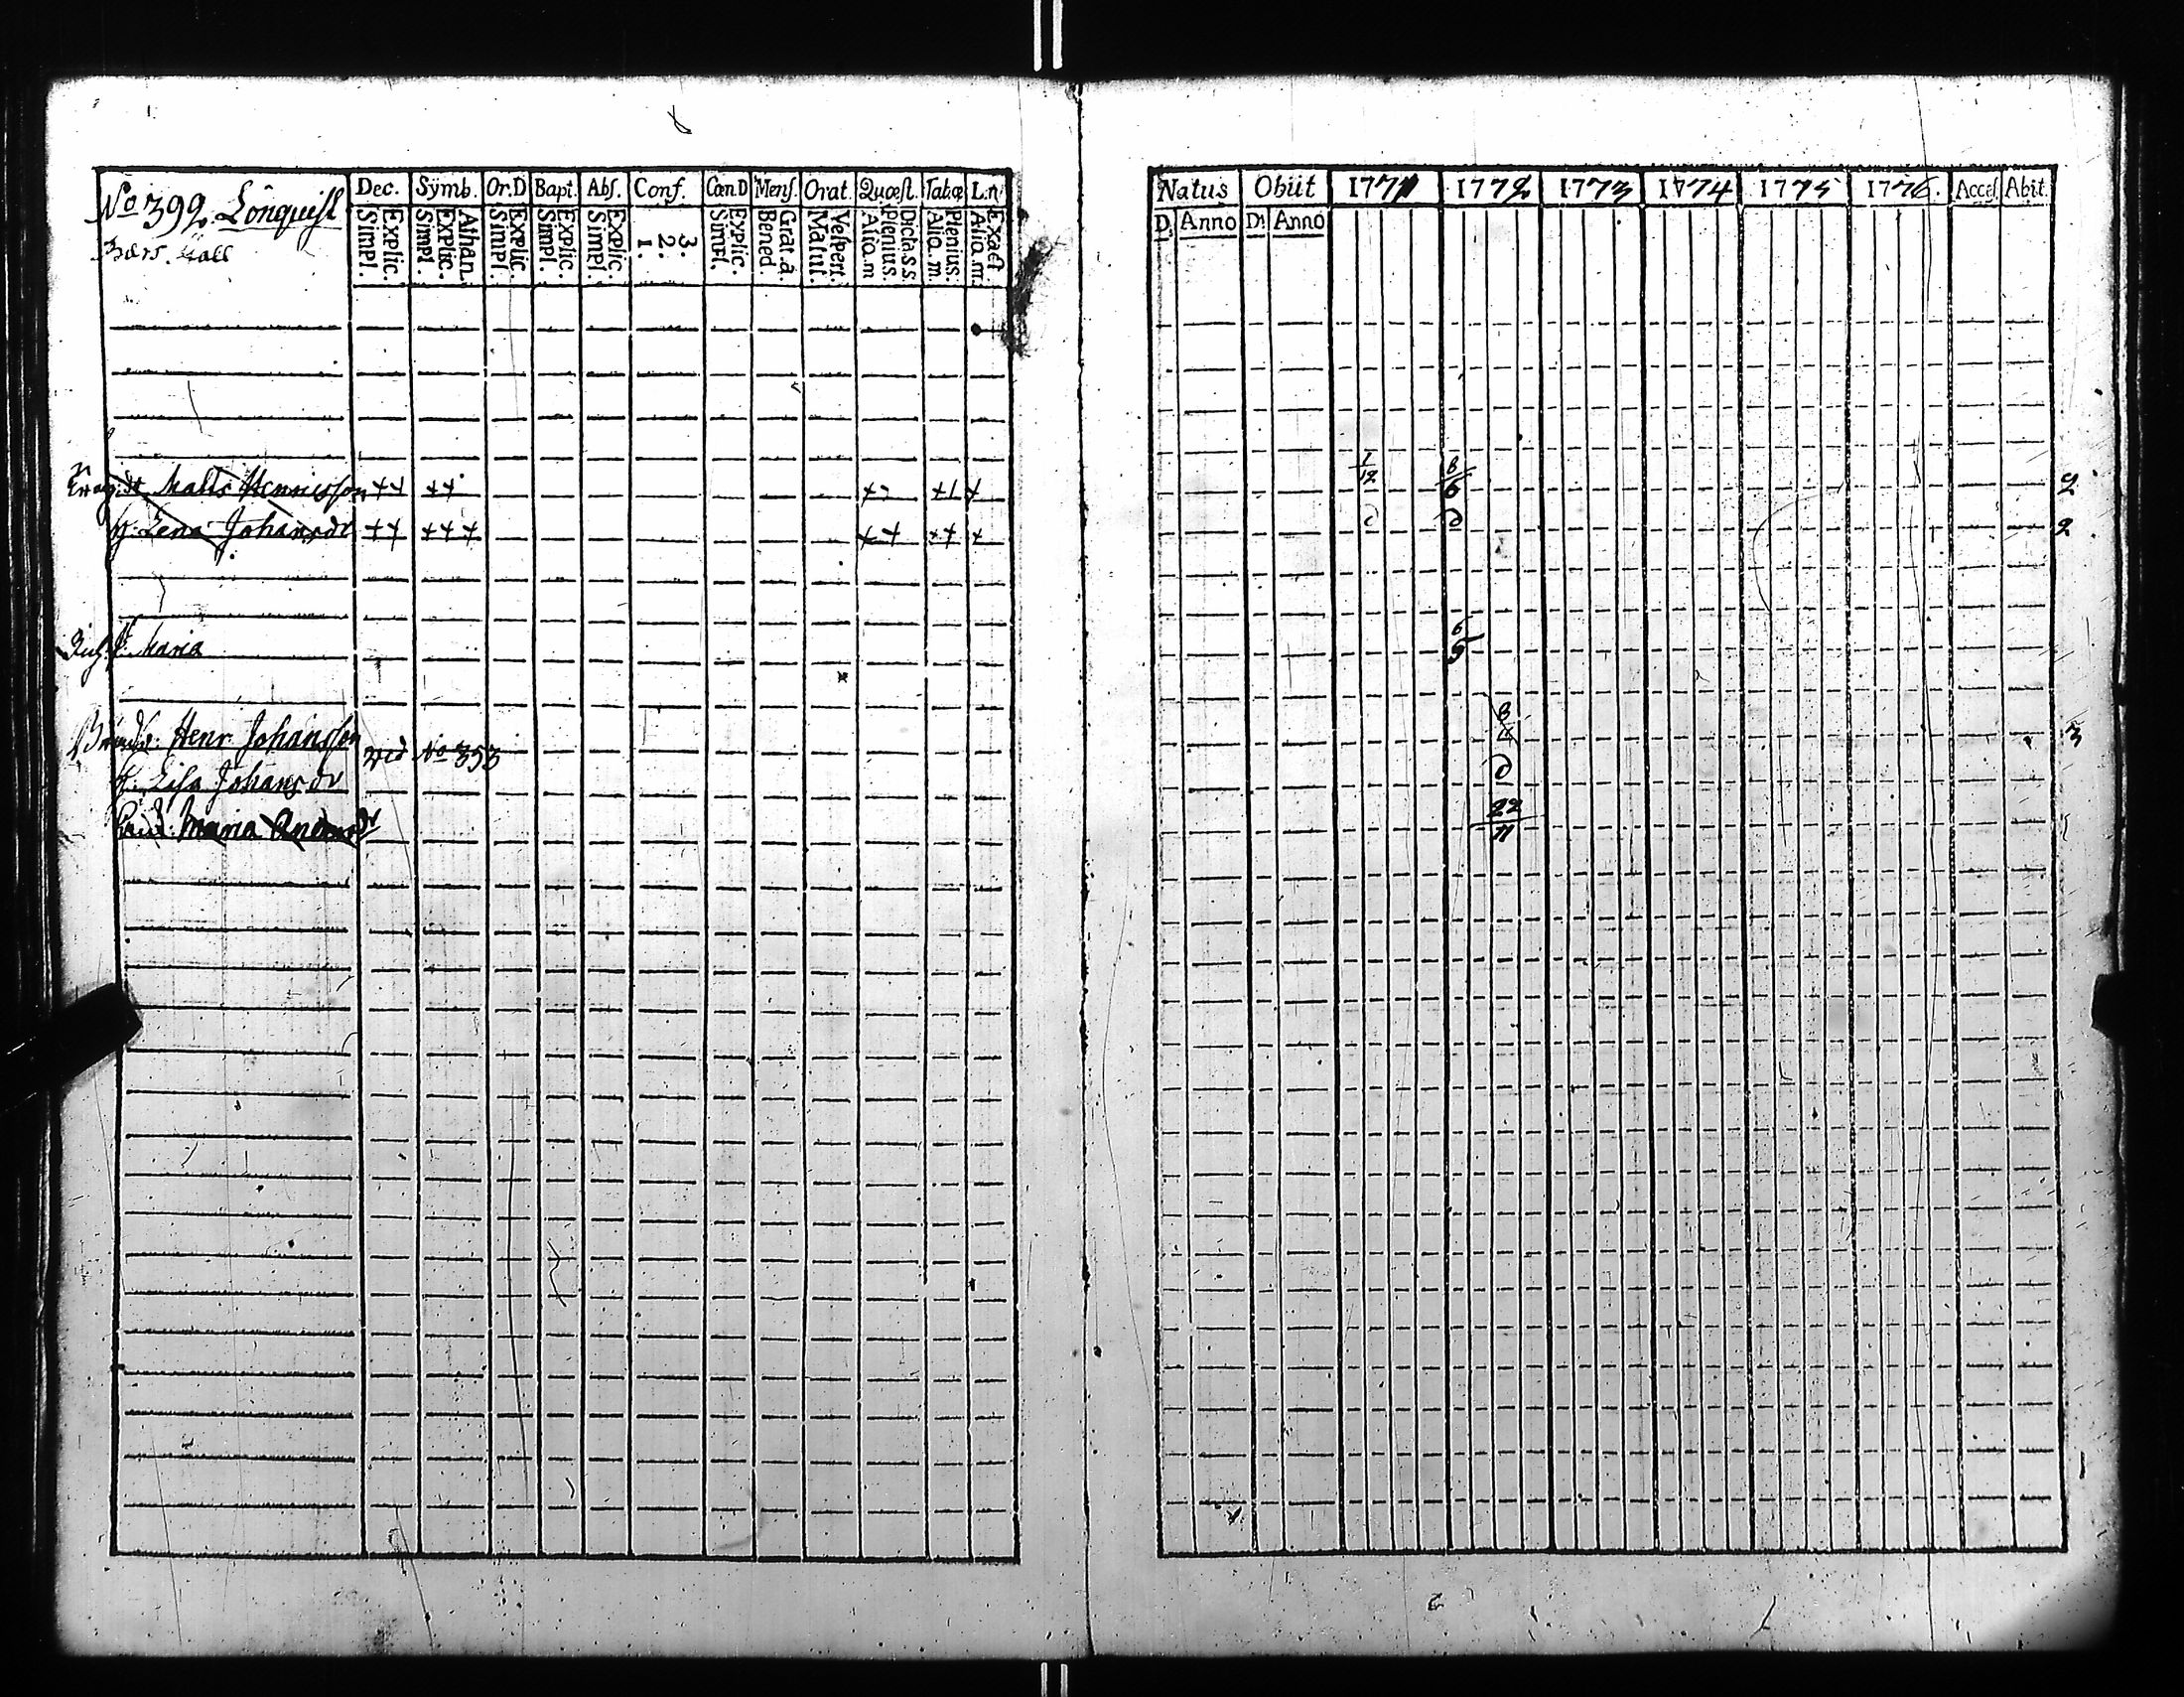 No 392. Lönquist
Dec. Symb. Or.D Bapt. Abs. Conf. Cœn.D Mens. Orat. Quæst. Tab.œ L.n
Explic. Simpl. Athan. Explic. Simpl. Explic. Simpl. Explic. Simpl. Explic. Simpl. 3. 2. 1. Explic. Simpl. Grat.a. Bened. Vespert. Matut. Dicta.s.s. Plenius. Aliq.m Plenius. Aliq.m. Exact. Aliq.m.
Matts Henricsson ++ ++
H. Lena Johansdr ++ +++ ++ ++ +
Maria
Henr. Johansson
vid No 353
H. Lisa Johansdr
Maria Andersdr
Natus Obiit 1771 1772 1773 1774 1775 1776. Acces. Abit.
D. Anno D. Anno
1/12 8/6 2
d d 2
6/5
8/4 3
d
22/11